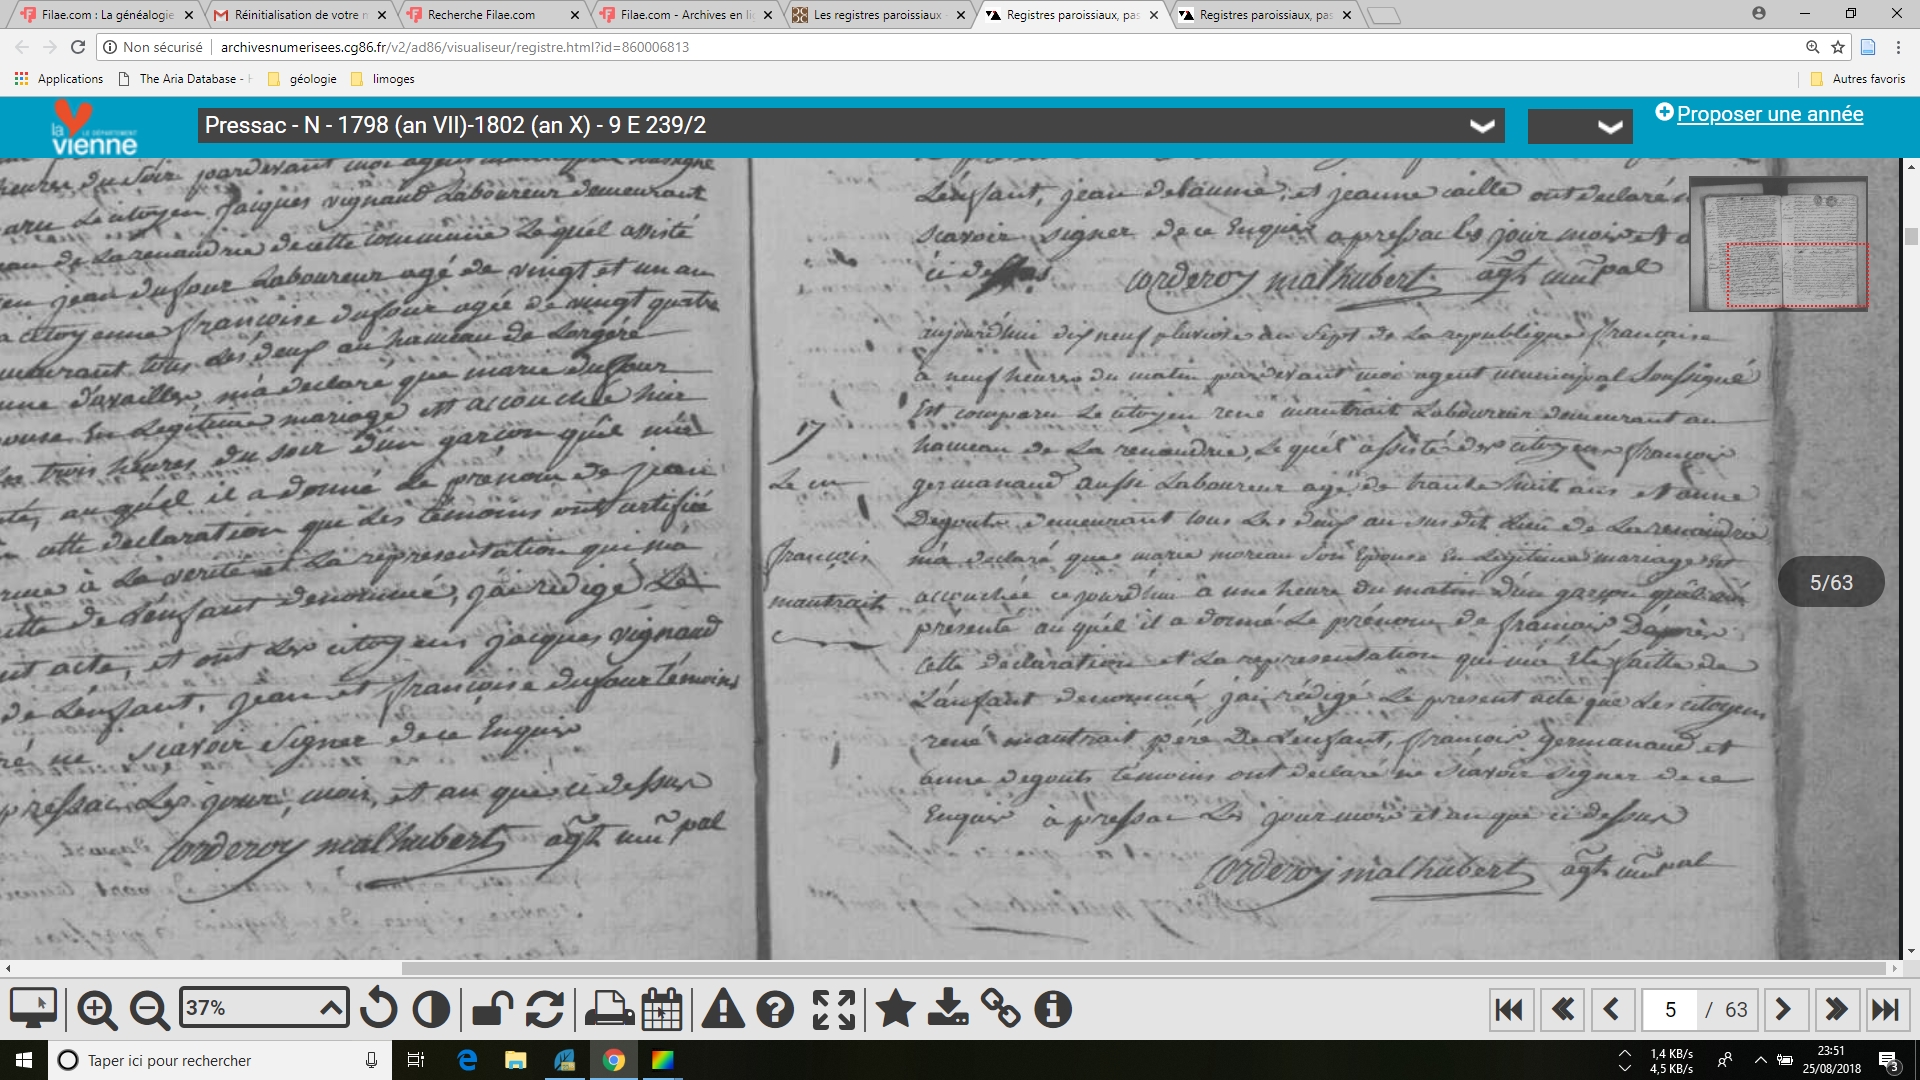 Filae.com : La généalogie
Réinitialisation de votre n
Recherche Filae.com
Filae.com - Archives en li
Les registres paroissiaux -
Registres paroissiaux, pas
Registres paroissiaux, pas
Non sécurisé
archivesnumerisees.cg86.fr/v2/ad86/visualiseur/registre.html?id=860006813
Applications
The Aria Database -
géologie
limoges
Autres favoris
la
LE DÉPARTEMENT
vienne
Pressac - N - 1798 (an VII)-1802 (an X) - 9 E 239/2
Proposer une année
heures du soir pardevant moi agent municipal soussigné
aru le citoyen jacques vignaud Laboureur demeurant
de Larenaudrie de cette commune Lequel assisté
en jean dufour Laboureur agé de vingt et un an
a citoyenne françoise dufour agée de vingt quatre
meurant tous Les deux au hameau de Lorgere
une davailles m'a declaré que marie dufour
ouse En Legitime mariage est accouchée hier
trois heures du soir d'un garçon quel m'a
té, auquel il a donné le prenom de jean
cette declaration que des temoins ont certifiée
rme à La verité et La representation qui m'a
ette de L'enfant denommé, j'ai redigé Le
nt acte, et ont Les citoyens jacques vignaud
de L'enfant, jean et françoise dufour temoins
ré ne scavoir signer de ce Enquis
pressac Les jour, mois, et an que ci dessus
Corderoy malhubert agt mupal
L'enfant, jean delaume, et jeanne caille ont declaré
scavoir signer de ce Enquis a pressac les jour mois et a
ci dessus
Corderoy malhubert agt mupal
aujourdhui dix neuf pluviose an sept de La republique française
a neuf heures du matin pardevant moi agent municipal soussigné
Est comparu Le citoyen rené mautrait Laboureur demeurant au
hameau de La renaudrie, Lequel assisté des citoyens françois
germanaud aussi Laboureur agé de trente huit ans et anne
Degouts demeurant tous Les deux au susdit Lieu de La renaudrie
m'a declaré que marie moreau son Epouse En Legitime mariage Est
accouchée ce jourdhui à une heure du matin d'un garçon quel m'a
presenté auquel il a donné Le prénom de françois D'après
cette declaration et La representation qui m'a Eté faitte de
L'enfant denommé j'ai rédigé Le present acte que Les citoyens
rené mautrait père De L'enfant, françois germanaud et
anne degouts temoins ont declaré ne scavoir signer de ce
Enquis à pressac Les jour mois et an que ci dessus
Corderoy malhubert agt mupal
17
françois
mautrait
5/63
37%
5 / 63
Taper ici pour rechercher
1,4 KB/s
4,5 KB/s
23:51
25/08/2018
3